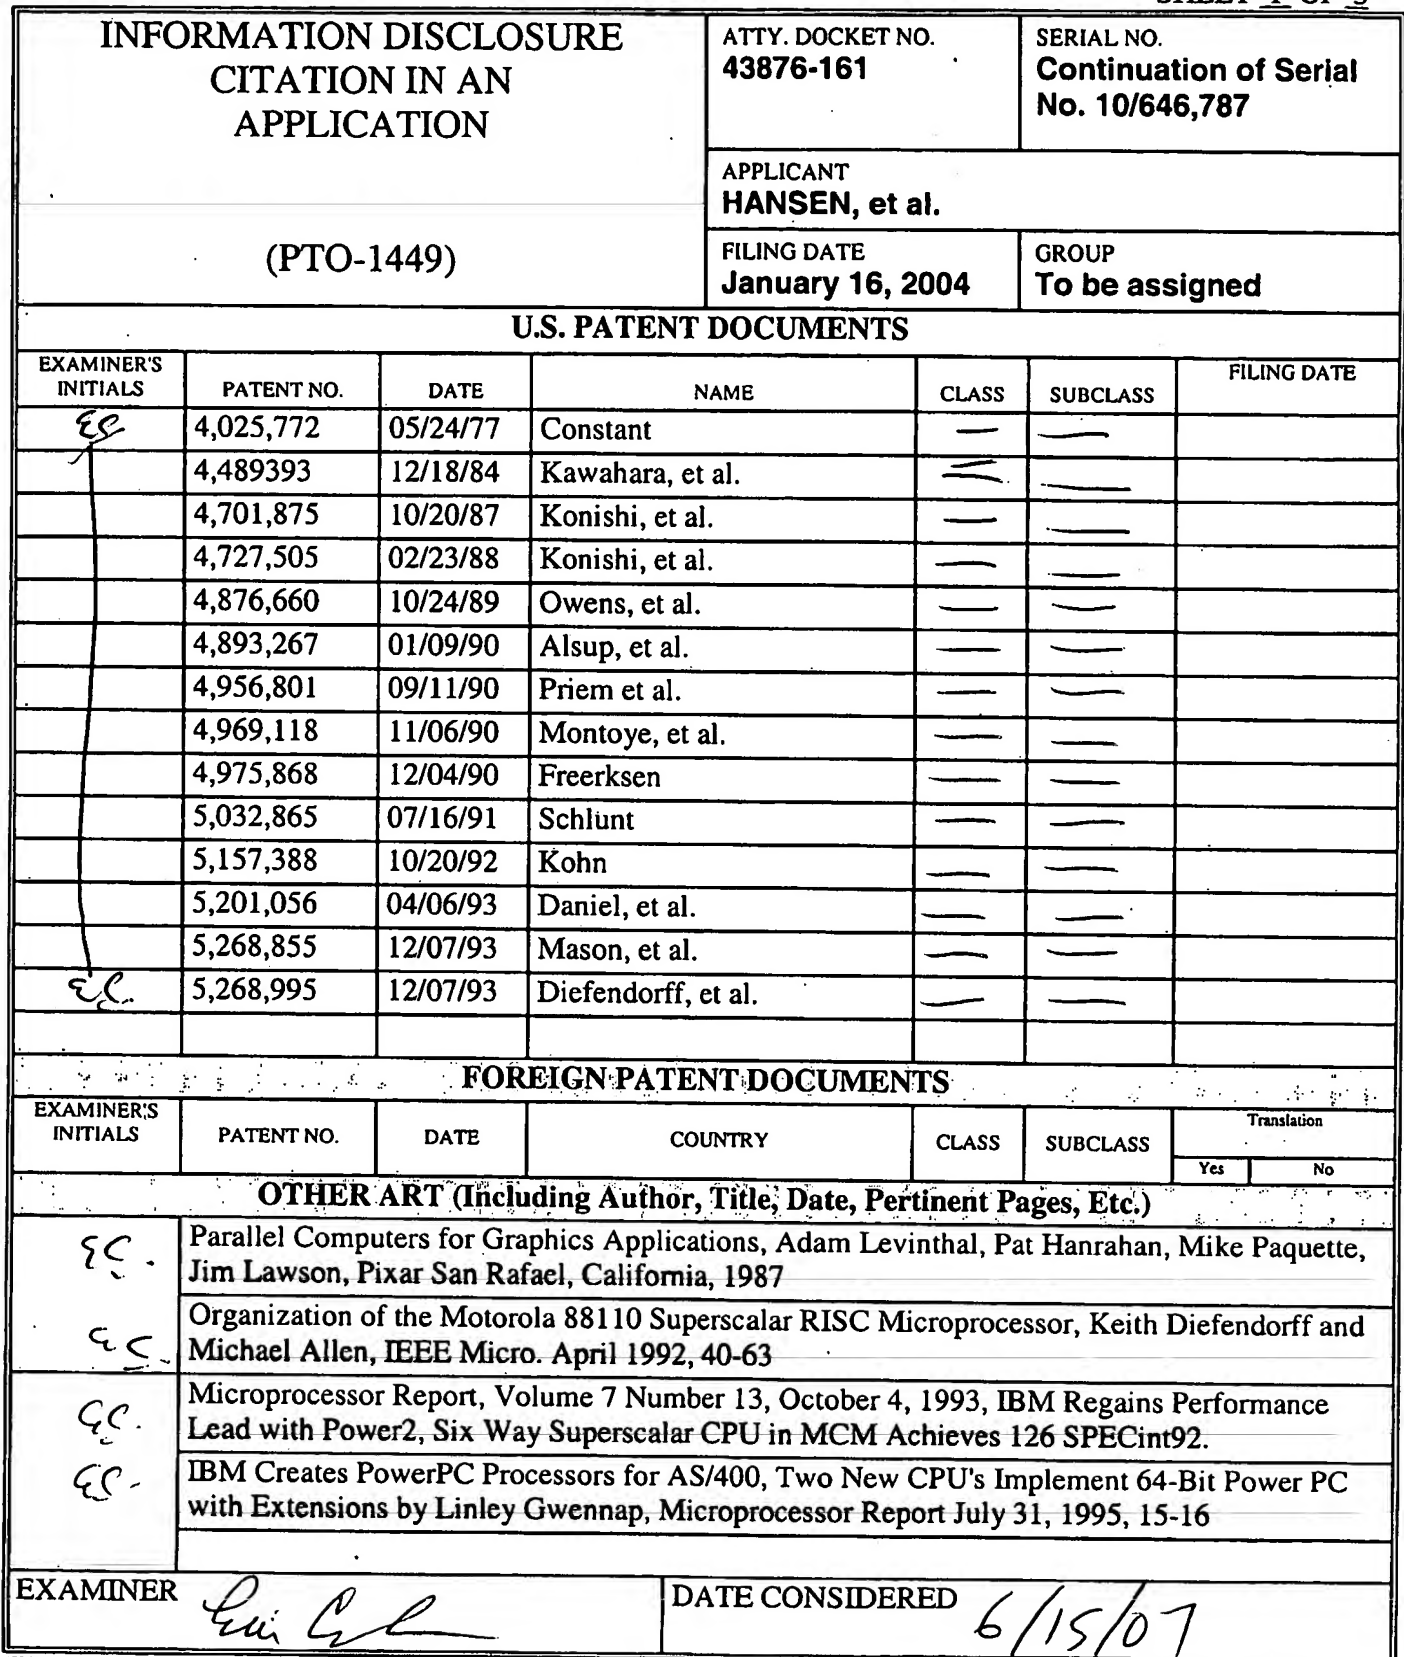 INFORMATION DISCLOSURE
CITATION IN AN
APPLICATION
(PTO-1449)
ATTY. DOCKET NO.
43876-161
SERIAL NO.
Continuation of Serial
No. 10/646,787
APPLICANT
HANSEN, et al.
FILING DATE
January 16, 2004
GROUP
To be assigned
U.S. PATENT DOCUMENTS
EXAMINER'S INITIALS PATENT NO. DATE NAME CLASS SUBCLASS FILING DATE
EC 4,025,772 05/24/77 Constant — —
4,489393 12/18/84 Kawahara, et al. — —
4,701,875 10/20/87 Konishi, et al. — —
4,727,505 02/23/88 Konishi, et al. — —
4,876,660 10/24/89 Owens, et al. — —
4,893,267 01/09/90 Alsup, et al. — —
4,956,801 09/11/90 Priem et al. — —
4,969,118 11/06/90 Montoye, et al. — —
4,975,868 12/04/90 Freerksen — —
5,032,865 07/16/91 Schlunt — —
5,157,388 10/20/92 Kohn — —
5,201,056 04/06/93 Daniel, et al. — —
5,268,855 12/07/93 Mason, et al. — —
E.C. 5,268,995 12/07/93 Diefendorff, et al. — —
FOREIGN PATENT DOCUMENTS
EXAMINER'S INITIALS PATENT NO. DATE COUNTRY CLASS SUBCLASS Translation
Yes No
OTHER ART (Including Author, Title, Date, Pertinent Pages, Etc.)
EC. Parallel Computers for Graphics Applications, Adam Levinthal, Pat Hanrahan, Mike Paquette,
Jim Lawson, Pixar San Rafael, California, 1987
EC. Organization of the Motorola 88110 Superscalar RISC Microprocessor, Keith Diefendorff and
Michael Allen, IEEE Micro. April 1992, 40-63
EC. Microprocessor Report, Volume 7 Number 13, October 4, 1993, IBM Regains Performance
Lead with Power2, Six Way Superscalar CPU in MCM Achieves 126 SPECint92.
EC. IBM Creates PowerPC Processors for AS/400, Two New CPU's Implement 64-Bit Power PC
with Extensions by Linley Gwennap, Microprocessor Report July 31, 1995, 15-16
EXAMINER
DATE CONSIDERED 6/15/07